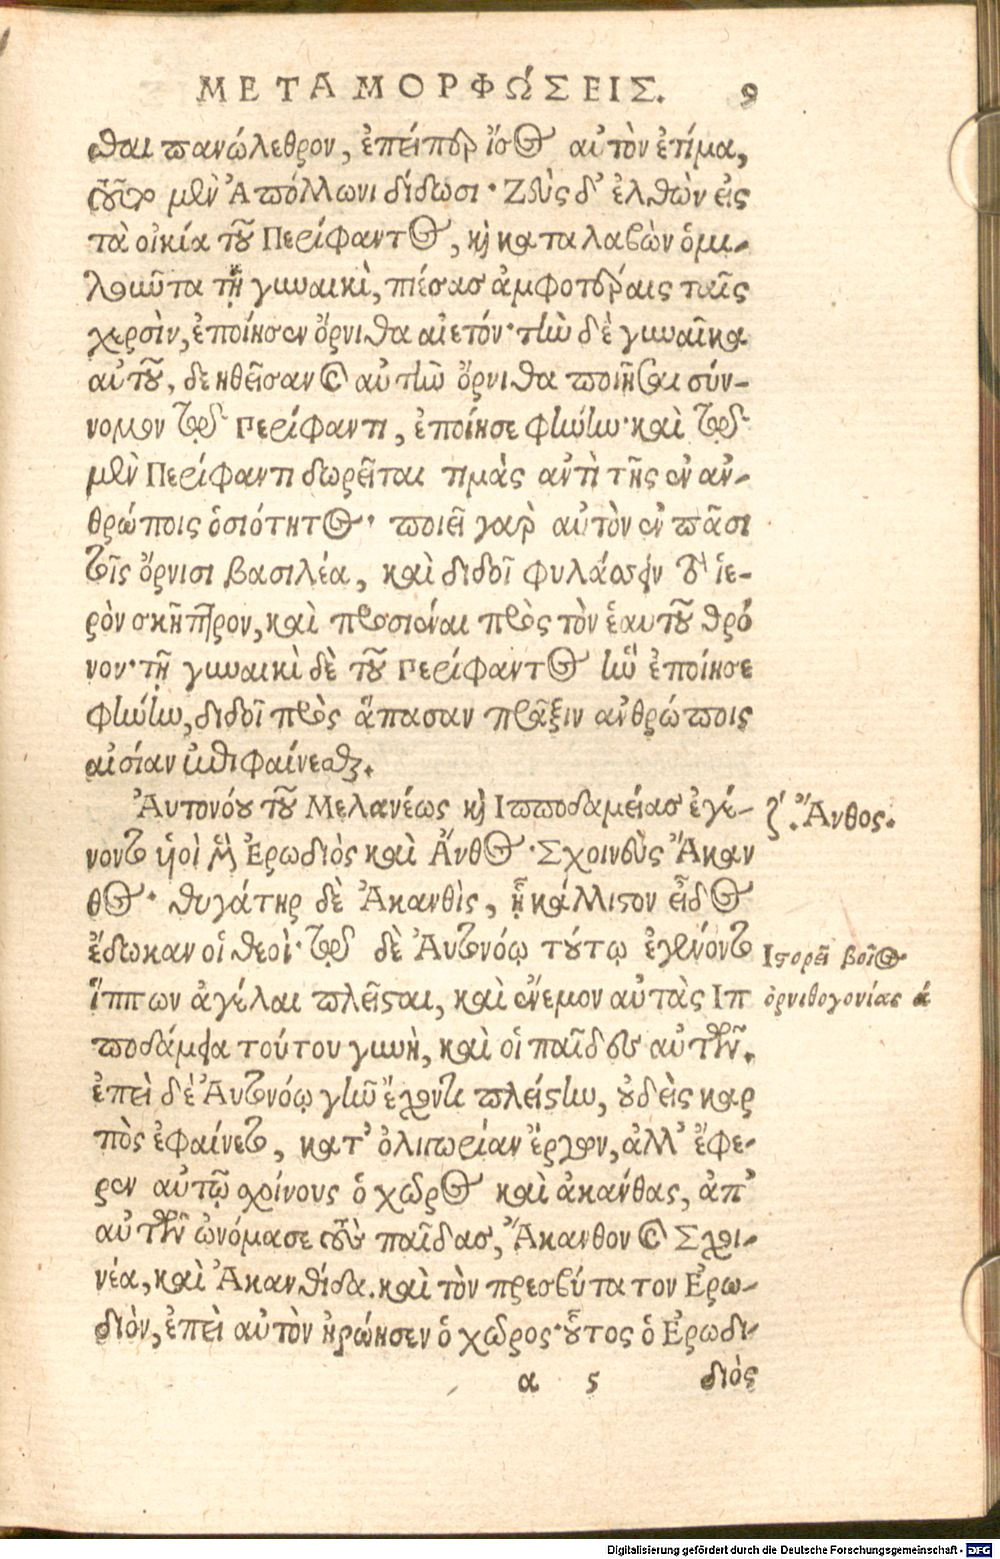 ΜΕΤΑΜΟΡΦΏΣΕΙΣ. 9
σθαι πανώλεθρον, ἐπείπερ ἴσος αὐτὸν ἐτίμα,
μὲν Ἀπόλλωνι δίδωσι· Ζεὺς δ' ἐλθὼν εἰς
τὰ οἰκία τοῦ Περίφαντος, καὶ καταλαβὼν ὁμι-
λοῦντα τῇ γυναικὶ, πιέσας ἀμφοτέραις ταῖς
χερσὶν, ἐποίησεν ὄρνιθα αἰετόν· τὴν δὲ γυναῖκα
αὐτοῦ, δεηθεῖσαν καὶ αὐτὴν ὄρνιθα ποιῆσαι σύν-
νομον τῷ Περίφαντι, ἐποίησε φήνην· καὶ τῷ
μὲν Περίφαντι δωρεῖται τιμὰς ἀντὶ τῆς ἐν ἀν-
θρώποις ὁσιότητος· ποιεῖ γὰρ αὐτὸν ἐν πᾶσι
τοῖς ὄρνισι βασιλέα, καὶ διδοῖ φυλάσσειν τὸ ἱε-
ρὸν σκῆπτρον, καὶ προσιέναι πρὸς τὸν ἑαυτοῦ θρό
νον· τῇ γυναικὶ δὲ τοῦ Περίφαντος ἣν ἐποίησε
φήνην, διδοῖ πρὸς ἅπασαν πρᾶξιν ἀνθρώποις
αἰσίαν ἐπιφαίνεσθαι.
Ἀυτονόου τοῦ Μελανέως καὶ Ιπποδαμείας ἐγέ-
νοντο υἱοὶ μὲν Ἐρωδιὸς καὶ Ἄνθος· Σχοινεὺς Ἄκαν
θος· θυγάτηρ δὲ Ἀκανθὶς, ᾗ κάλλιστον εἶδος
ἔδωκαν οἱ θεοί· τῷ δὲ Ἀυτονόῳ τούτῳ ἐγένοντο
ἵππων ἀγέλαι πλεῖσται, καὶ ἔνεμον αὐτὰς Ιπ
ποδάμεια τούτου γυνὴ, καὶ οἱ παῖδες αὐτῶν.
ἐπεὶ δὲ Ἀυτονόῳ γῆν ἔχοντι πλείστην, οὐδεὶς καρ
πὸς ἐφαίνετο, κατ' ὀλιγωρίαν ἔργων, ἀλλ' ἔφε-
ρεν αὐτῷ σχοίνους ὁ χῶρος καὶ ἀκάνθας, ἀπ'
αὐτῶν ὠνόμασε τοὺς παῖδας, Ἄκανθον καὶ Σχοι-
νέα, καὶ Ἀκανθίδα. καὶ τὸν πρεσβύτατον Ἐρω-
διὸν, ἐπεὶ αὐτὸν ἠρώησεν ὁ χῶρος· οὗτος ὁ Ἐρωδι-
α 5 διὸς
ζʹ. Ἄνθος.
Ιστορεῖ βοῖος
ὀρνιθογονίας ά
Digitalisierung gefördert durch die Deutsche Forschungsgemeinschaft - DFG